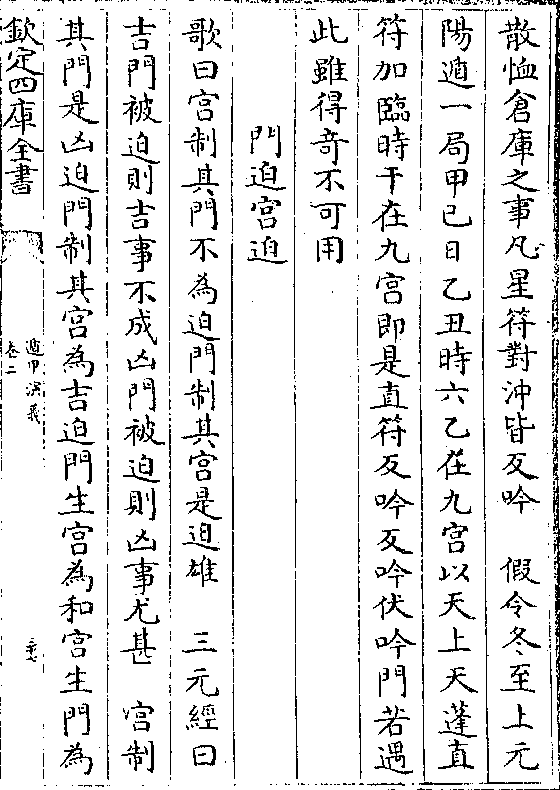 散恤倉庫之事凡星符對沖皆反吟　假令冬至上元
陽遁一局甲己日乙丑時六乙在九宮以天上天蓬直
符加臨時干在九宮即是直符反吟反吟伏吟門若遇
此雖得竒不可用
門迫宮迫
歌曰宮制其門不為迫門制其宮是迫雄　三元經曰
吉門被迫則吉事不成凶門被迫則凶事尤甚　宮制
其門是凶迫門制其宮為吉迫門生宮為和宮生門為
欽定四庫全書
遁甲演義
卷二